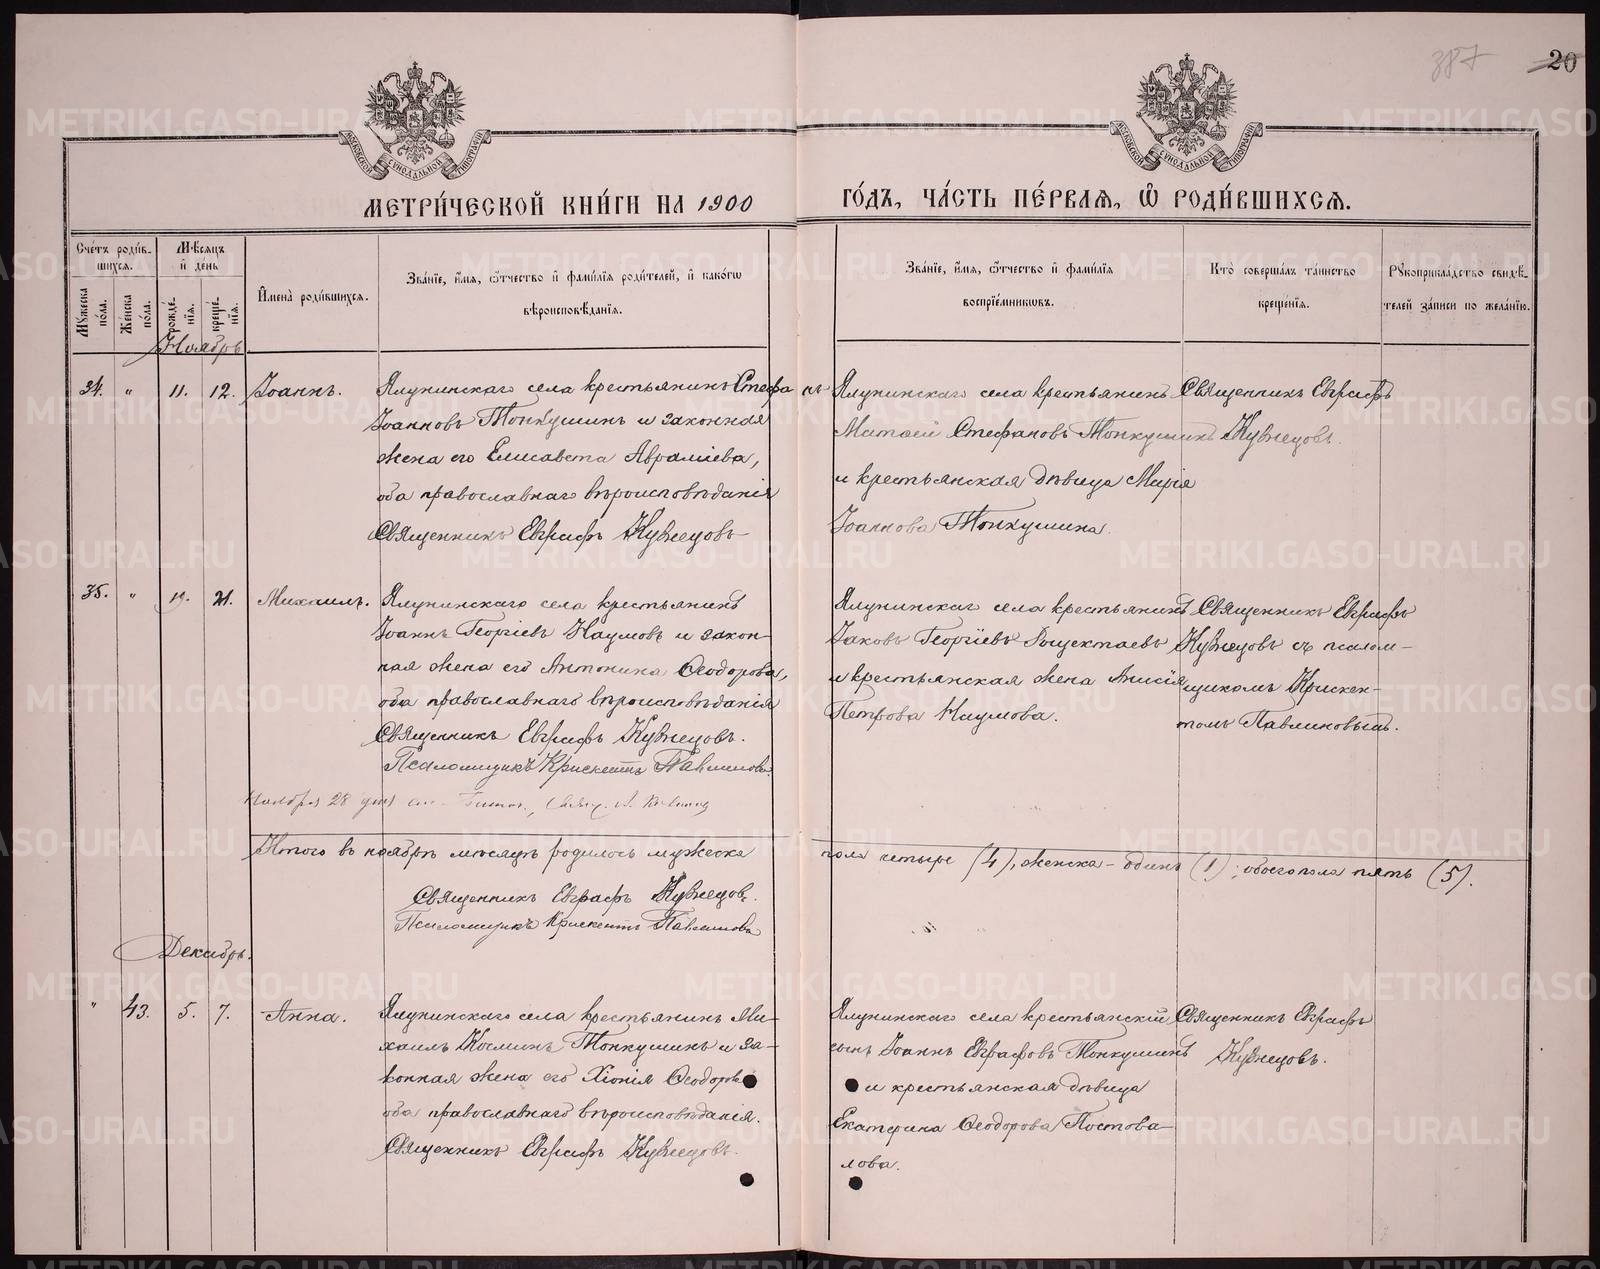 387 20
МОСКОВСКОЙ СУНОДАЛЬНОЙ ТИПОГРАФІИ
МОСКОВСКОЙ СУНОДАЛЬНОЙ ТИПОГРАФІИ
МЕТРИ́ЧЕСКОЙ КНИ́ГИ НА 1900 ГО́ДЪ, ЧА́СТЬ ПЕ́РВАЯ, Ѽ РОДИ́ВШИХСЯ.
Сче́тъ роди́в-
шихся.
Мѣ́сяцъ
и҆ де́нь
Мꙋ́жеска по́ла.
Же́нска по́ла.
рожде́-нїя.
креще́-нїя.
И҆мена̀ роди́вшихся.
Зва́нїе, и҆́мя, ѻ҆́тчество и҆ фами́лїя роди́телей, и҆ како́гѡ
вѣроисповѣ́данїя.
Зва́нїе, и҆́мя, ѻ҆́тчество и҆ фами́лїя
воспрїе́мникѡвъ.
Кто̀ соверша́лъ та́инство
креще́нїя.
Рꙋкоприкла́дство свидѣ́-
телей за́писи по жела́нїю.
Ноябрь
34. " 11. 12. Іоаннъ.
Ялунинскаго села крестьянинъ Стефанъ
Іоанновъ Топкушинъ и законная
жена его Елисавета Авраміева,
оба православнаго вѣроисповѣданія
Священникъ Евграфъ Кузнецовъ
Ялунинскаго села крестьянинъ
Матѳей Стефановъ Топкушинъ
и крестьянская дѣвица Марія
Іоаннова Топкушина.
Священникъ Евграфъ
Кузнецовъ.
35. " 19. 21. Михаилъ.
Ялунинскаго села крестьянинъ
Іоаннъ Георгіевъ Наумовъ и закон-
ная жена его Антонина Ѳеодорова,
оба православнаго вѣроисповѣданія
Священникъ Евграфъ Кузнецовъ.
Псаломщикъ Крискентъ Павлиновъ
Ялунинскаго села крестьянинъ
Іаковъ Георгіевъ
и крестьянская жена Анисія
Петрова Наумова.
Священникъ Евграфъ
Кузнецовъ съ псалом-
щикомъ Крискен-
томъ Павлиновымъ.
Ноября 28 дня
Итого въ ноябрѣ мѣсяцѣ родилось мужеска пола четыре (4), женска - одинъ (1); обоего пола пять (5).
Священникъ Евграфъ Кузнецовъ.
Псаломщикъ Крискентъ Павлиновъ
Декабрь.
" 43. 5. 7. Анна.
Ялунинскаго села крестьянинъ Ми-
хаилъ Косминъ Топкушинъ и за-
конная жена его Хіонія Ѳеодорова
оба православнаго вѣроисповѣданія.
Священникъ Евграфъ Кузнецовъ.
Ялунинскаго села крестьянскій
сынъ Іоаннъ Евграфовъ Топкушинъ
и крестьянская дѣвица
Екатерина Ѳеодорова Постова-
лова.
Священникъ Евграфъ
Кузнецовъ.
METRIKI.GASO-URAL.RU